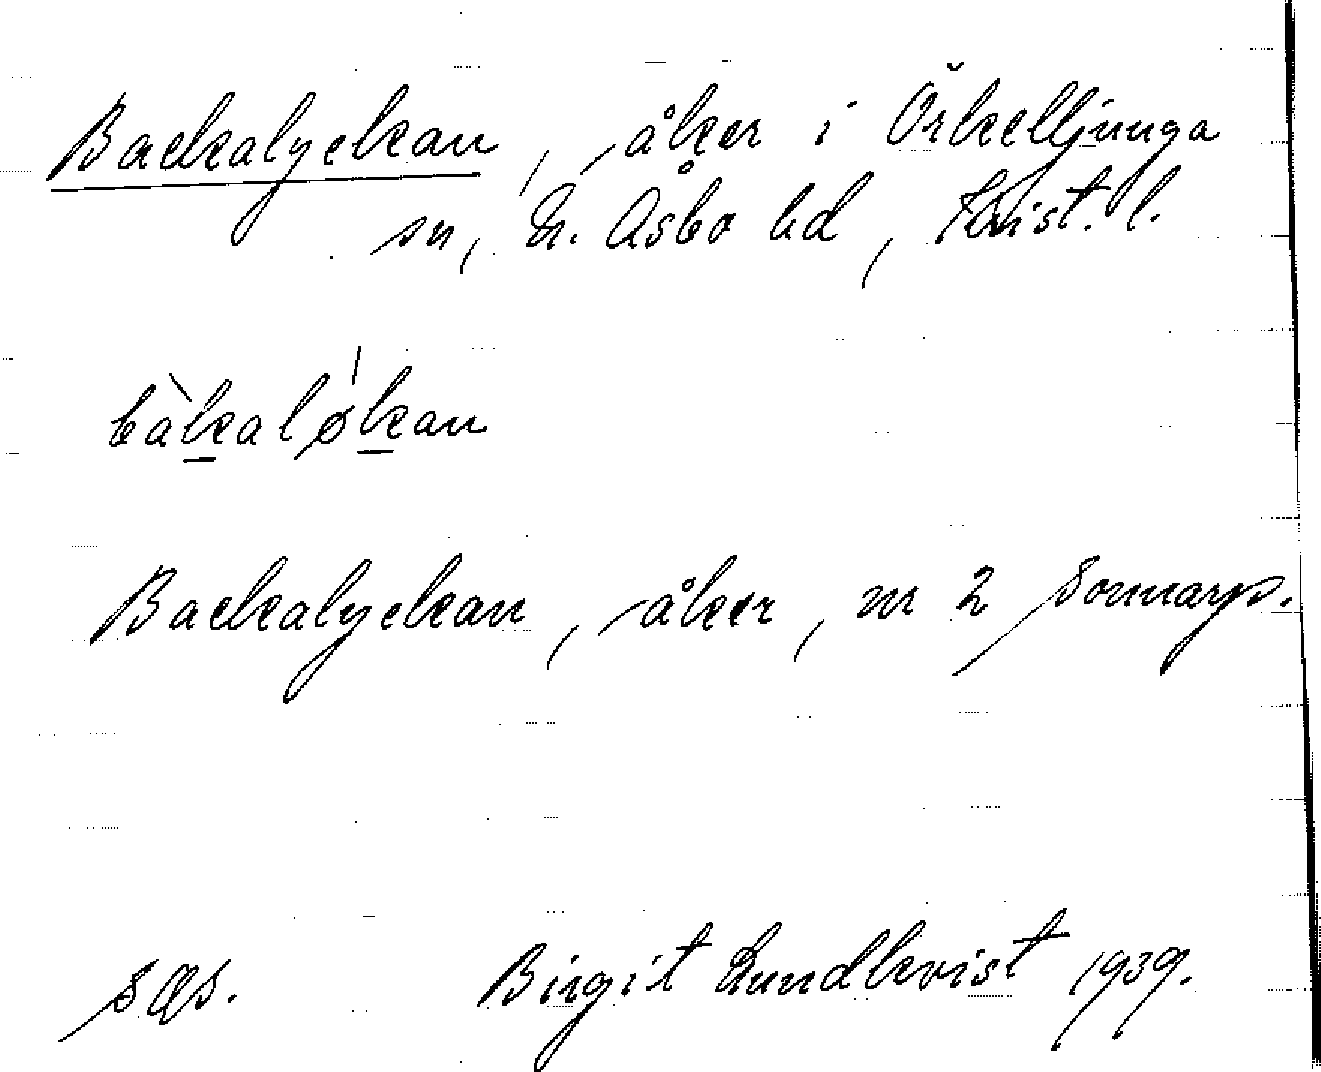 Backalyckan, åker i Örkelljunga
sn, N. Åsbo hd, Krist. l.
bàkaløkan
Backalyckan, åker, nr 2 Sonnarp.
sgs. Birgit Lundkvist 1939.